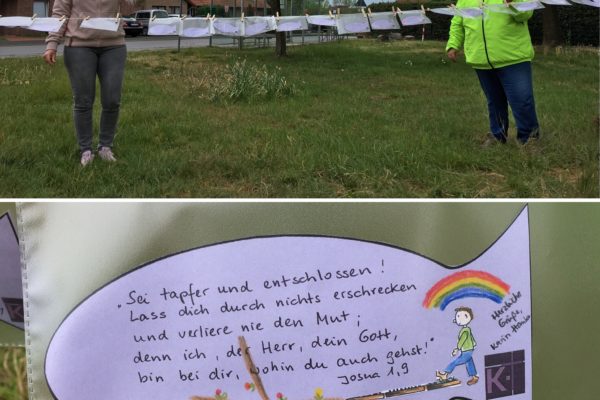 „Sei tapfer und entschlossen!
Lass dich durch nichts erschrecken
und verliere nie den Mut;
denn ich, der Herr, dein Gott,
bin bei dir, wohin du auch gehst!"
Josua 1,9
Herzliche
Grüße,
Karin
K